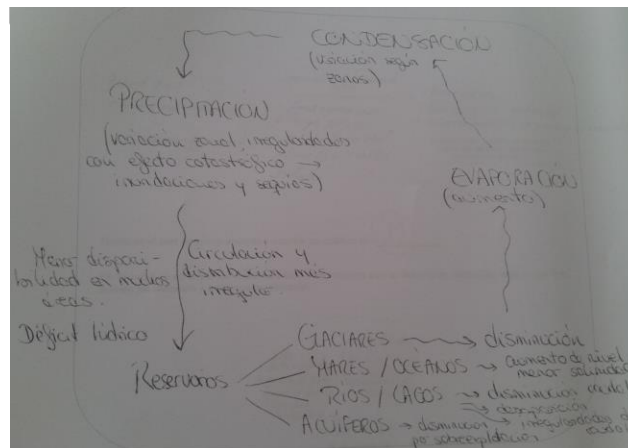 CONDENSACIÓN
(variación según
zonas)
PRECIPITACION
(variación zonal, irregularidades
con efecto catastrófico →
inundaciones y sequías)
EVAPORACIÓN
(aumento)
Menor disponi-
bilidad en muchas
áreas.
Déficit hídrico
Circulación y
distribución más
irregular.
Reservorios
GLACIARES → disminución
MARES / OCÉANOS → aumento de nivel
menor salinidad
RÍOS / LAGOS → disminución caudal
→ desaparición
→ irregularidades
ACUÍFEROS → disminución
por sobreexplotación